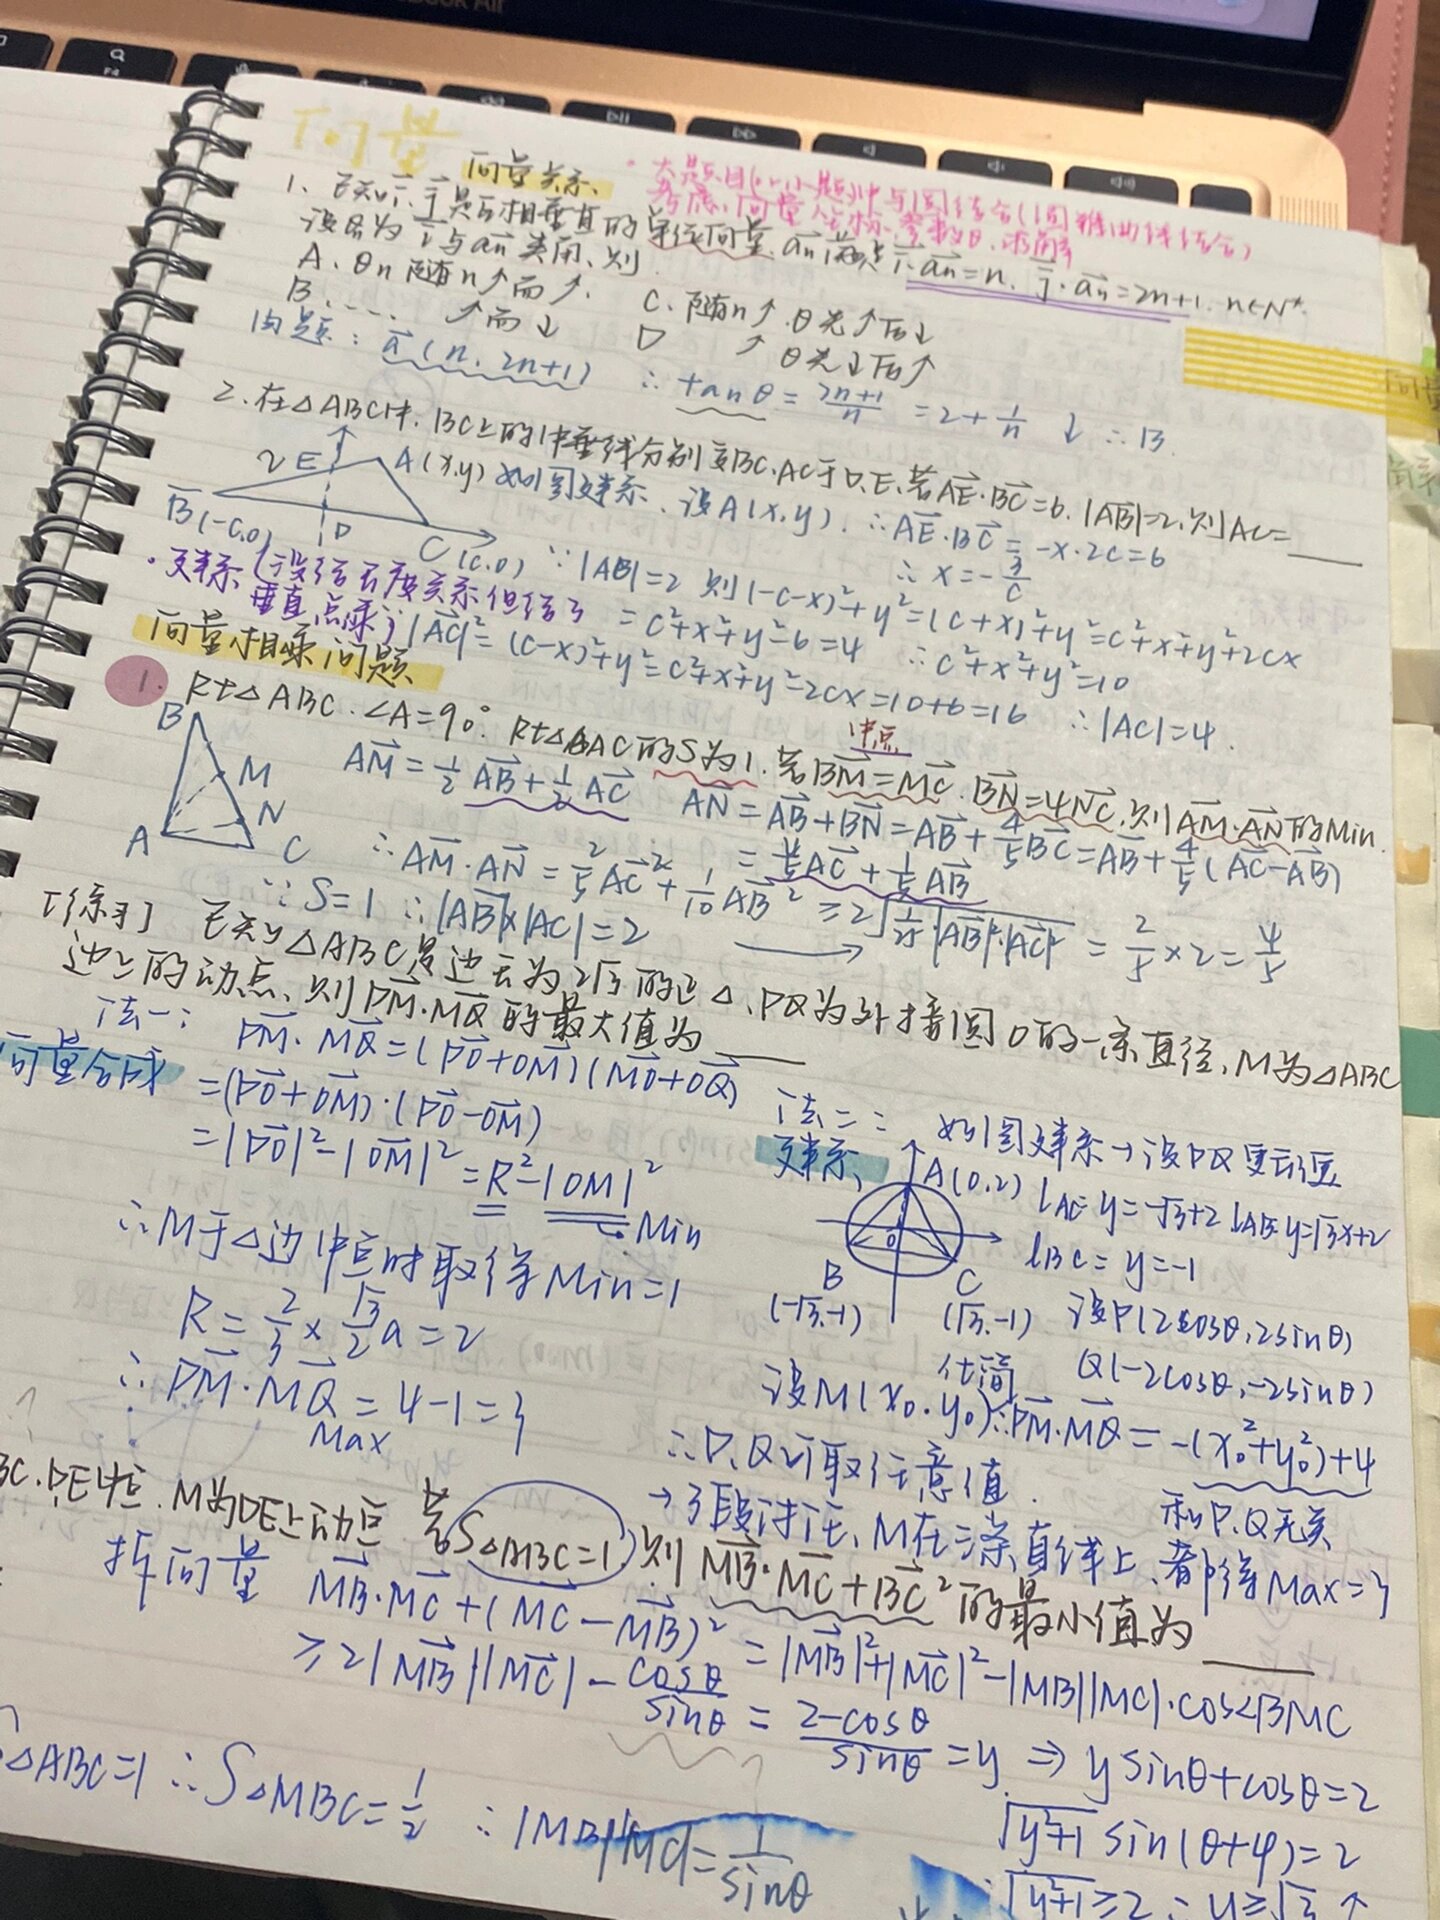 向量
向量关系
1、已知i、j是互相垂直的单位向量，an满足i·an=n，j·an=2n+1，n∈N*
设θn为i与an夹角，则
A、θn随n↑而↑.
C、随n↑θ先↑后↓
B ... ↑而↓
D ↑θ先↓后↑
由题：a(n, 2n+1) ∴tanθ=(2n+1)/n=2+1/n ↓ ∴B
2.在△ABC中，BC上的中垂线分别交BC、AC于D、E，若AE·BC=6，|AB|=2，则AC=____
E A(x,y) 如图建系，设A(x,y). ∴AE·BC=-x·2c=6
B(-c,0) D C(c,0) ∴x=-3/c
∵|AB|=2 则(-c-x)²+y²=(c+x)²+y²=c²+x²+y²+2cx
·建系(没给长度关系但给了垂直点乘)
=c²+x²+y²-6=4 ∴c²+x²+y²=10
|AC|²=(c-x)²+y²=c²+x²+y²-2cx=10+6=16 ∴|AC|=4.
向量相乘问题
1. Rt△ABC.∠A=90°. Rt△BAC的S为1.若BM=MC.BN=4NC.则AM·AN的Min.
中点
B M N A C
AM=1/2AB+1/2AC AN=AB+BN=AB+4/5BC=AB+4/5(AC-AB)
=4/5AC+1/5AB
∴AM·AN=2/5AC²+1/10AB²≥2√(1/25·|AB|²·|AC|²)=2/5×2=4/5
∵S=1 ∴|AB|×|AC|=2
[练习] 已知△ABC是边长为2√3的正△，PQ为外接圆O的一条直径，M为△ABC
边上的动点，则PM·MQ的最大值为____
法一：PM·MQ=(PO+OM)(MO+OQ)
向量合成
=(PO+OM)·(PO-OM)
=|PO|²-|OM|²=R²-|OM|²
Min
∴M于△边中点时取得Min=1
R=2/3×√3/2a=2
∴PM·MQ Max=4-1=3
法二：
建系
如图建系→设PQ
A(0,2) lAC y=-√3+2 lAB y=√3x+2
lBC=y=-1
0
B (-√3,-1) C (√3,-1)
设P(2cosθ,2sinθ)
Q(-2cosθ,-2sinθ)
化简
设M(x₀,y₀) ∴PM·MQ=-(x₀²+y₀²)+4
和P、Q无关
∴P、Q可取任意值.
→3段讨论、M在三条直线上、都得Max=3
BC.DE中点.M为DE上动点.若S△ABC=1，则MB·MC+BC²的最小值为____
拆向量 MB·MC+(MC-MB)²=|MB|²+|MC|²-|MB||MC|·cos∠BMC
≥2|MB||MC|-cosθ/sinθ=(2-cosθ)/sinθ=y ⇒ysinθ+cosθ=2
√(y²+1) sin(θ+φ)=2
△ABC=1 ∴S△MBC=1/2 ∴|MB||MC|=1/sinθ
√(y²+1)≥2 ∴y≥√3